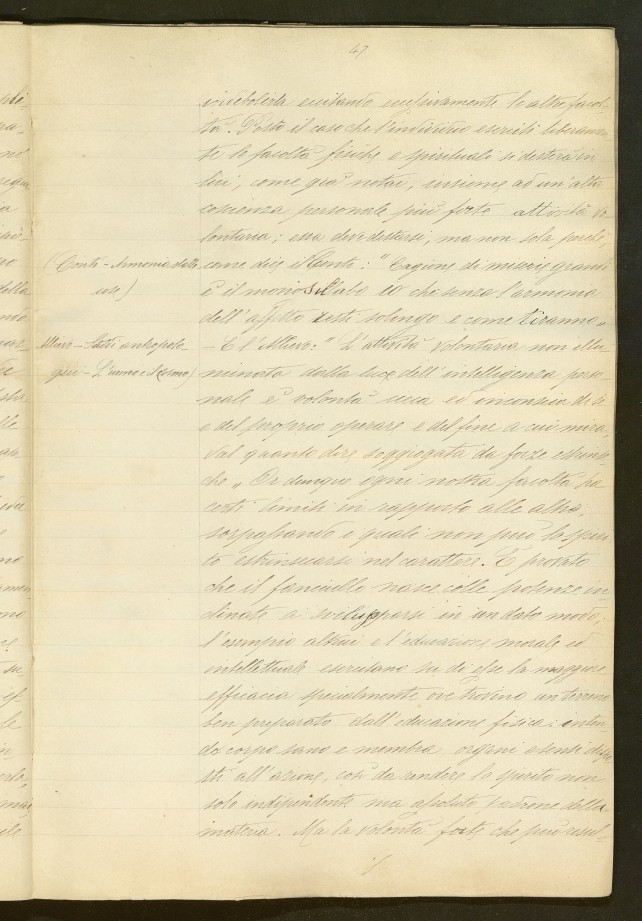 47
indebolirla eccitando eccessivamente le altre facol-
tà. Posto il caso che l'individuo eserciti liberamen-
te le facoltà fisiche e spirituali si desterà in
lui, come già notai, insieme ad un'alta
coscienza personale più forte attività vo-
lontaria; essa deve destarsi, ma non sola perché,
(Conti - Armonia delle
cose)
come dice il Conti: "Cagione di miserie grandi
è il mono sillabo io che senza l'armonia
dell'affetto resti solingo e come tiranno"
Allievo - Studi antropolo-
gici - L'uomo e il cosmo)
- E l'Allievo: "L'attività volontaria non illu-
minata dalla luce dell'intelligenza perso-
nale è volontà cieca ed inconscia di sé
e del proprio operare e del fine a cui mira,
val quanto dire soggiogata da forze estrinse-
che" Or dunque ogni nostra facoltà ha
certi limiti in rapporto alle altre,
sorpassando i quali non può lo spiri-
to estrinsecarsi nel carattere. È provato
che il fanciullo nasce colle potenze in
clinate a svilupparsi in un dato modo;
l'esempio altrui e l'educazione morale ed
intellettuale esercitano su di esse la maggiore
efficacia specialmente ove trovino un terreno
ben preparato dall'educazione fisica: inten-
do corpo sano e membra, organi e sensi
sti all'azione, così da rendere lo spirito non
solo indipendente ma assoluto padrone della
materia. Ma la volontà forte che può resul-